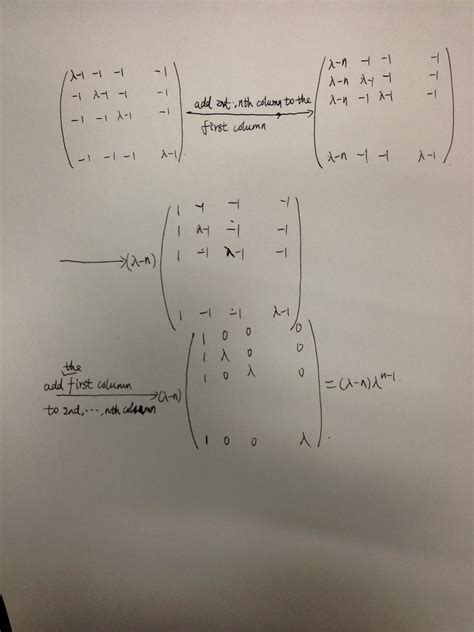 λ-1 -1 -1 -1
-1 λ-1 -1 -1
-1 -1 λ-1 -1
-1 -1 -1 λ-1
add 2nd..,nth column to the
first column
λ-n -1 -1 -1
λ-n λ-1 -1 -1
λ-n -1 λ-1 -1
λ-n -1 -1 λ-1
(λ-n)
1 -1 -1 -1
1 λ-1 -1 -1
1 -1 λ-1 -1
1 -1 -1 λ-1
the
add first column
to 2nd, ..., nth column
(λ-n)
1 0 0 0
1 λ 0 0
1 0 λ 0
1 0 0 λ
=(λ-n)λ^{n-1}.